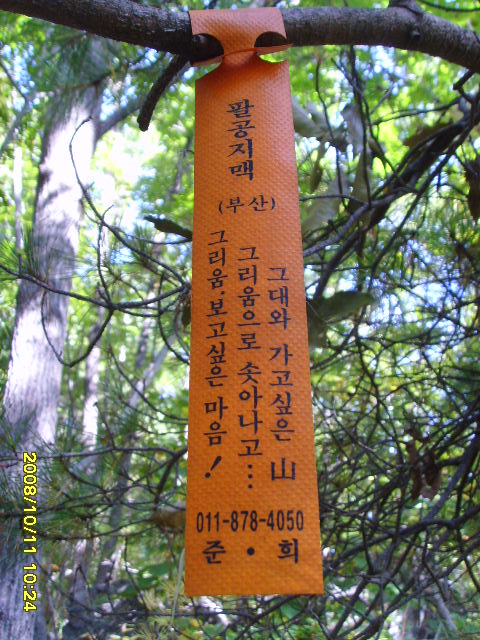 팔공지맥
(부산)
그대와 가고싶은 山
그리움으로 솟아나고…
그리움·보고싶은 마음!
011-878-4050
준·희
2008/10/11 10:24